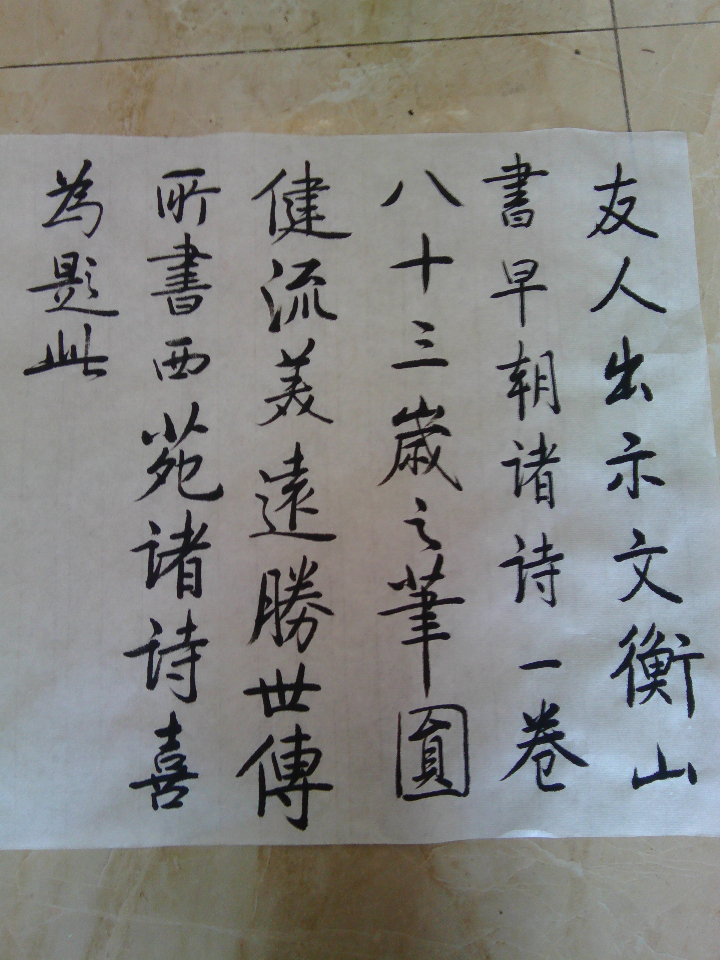 友人出示文衡山
書早朝诸诗一卷
八十三歲之筆圓
健流美遠勝世傳
所書西苑诸诗喜
為题此